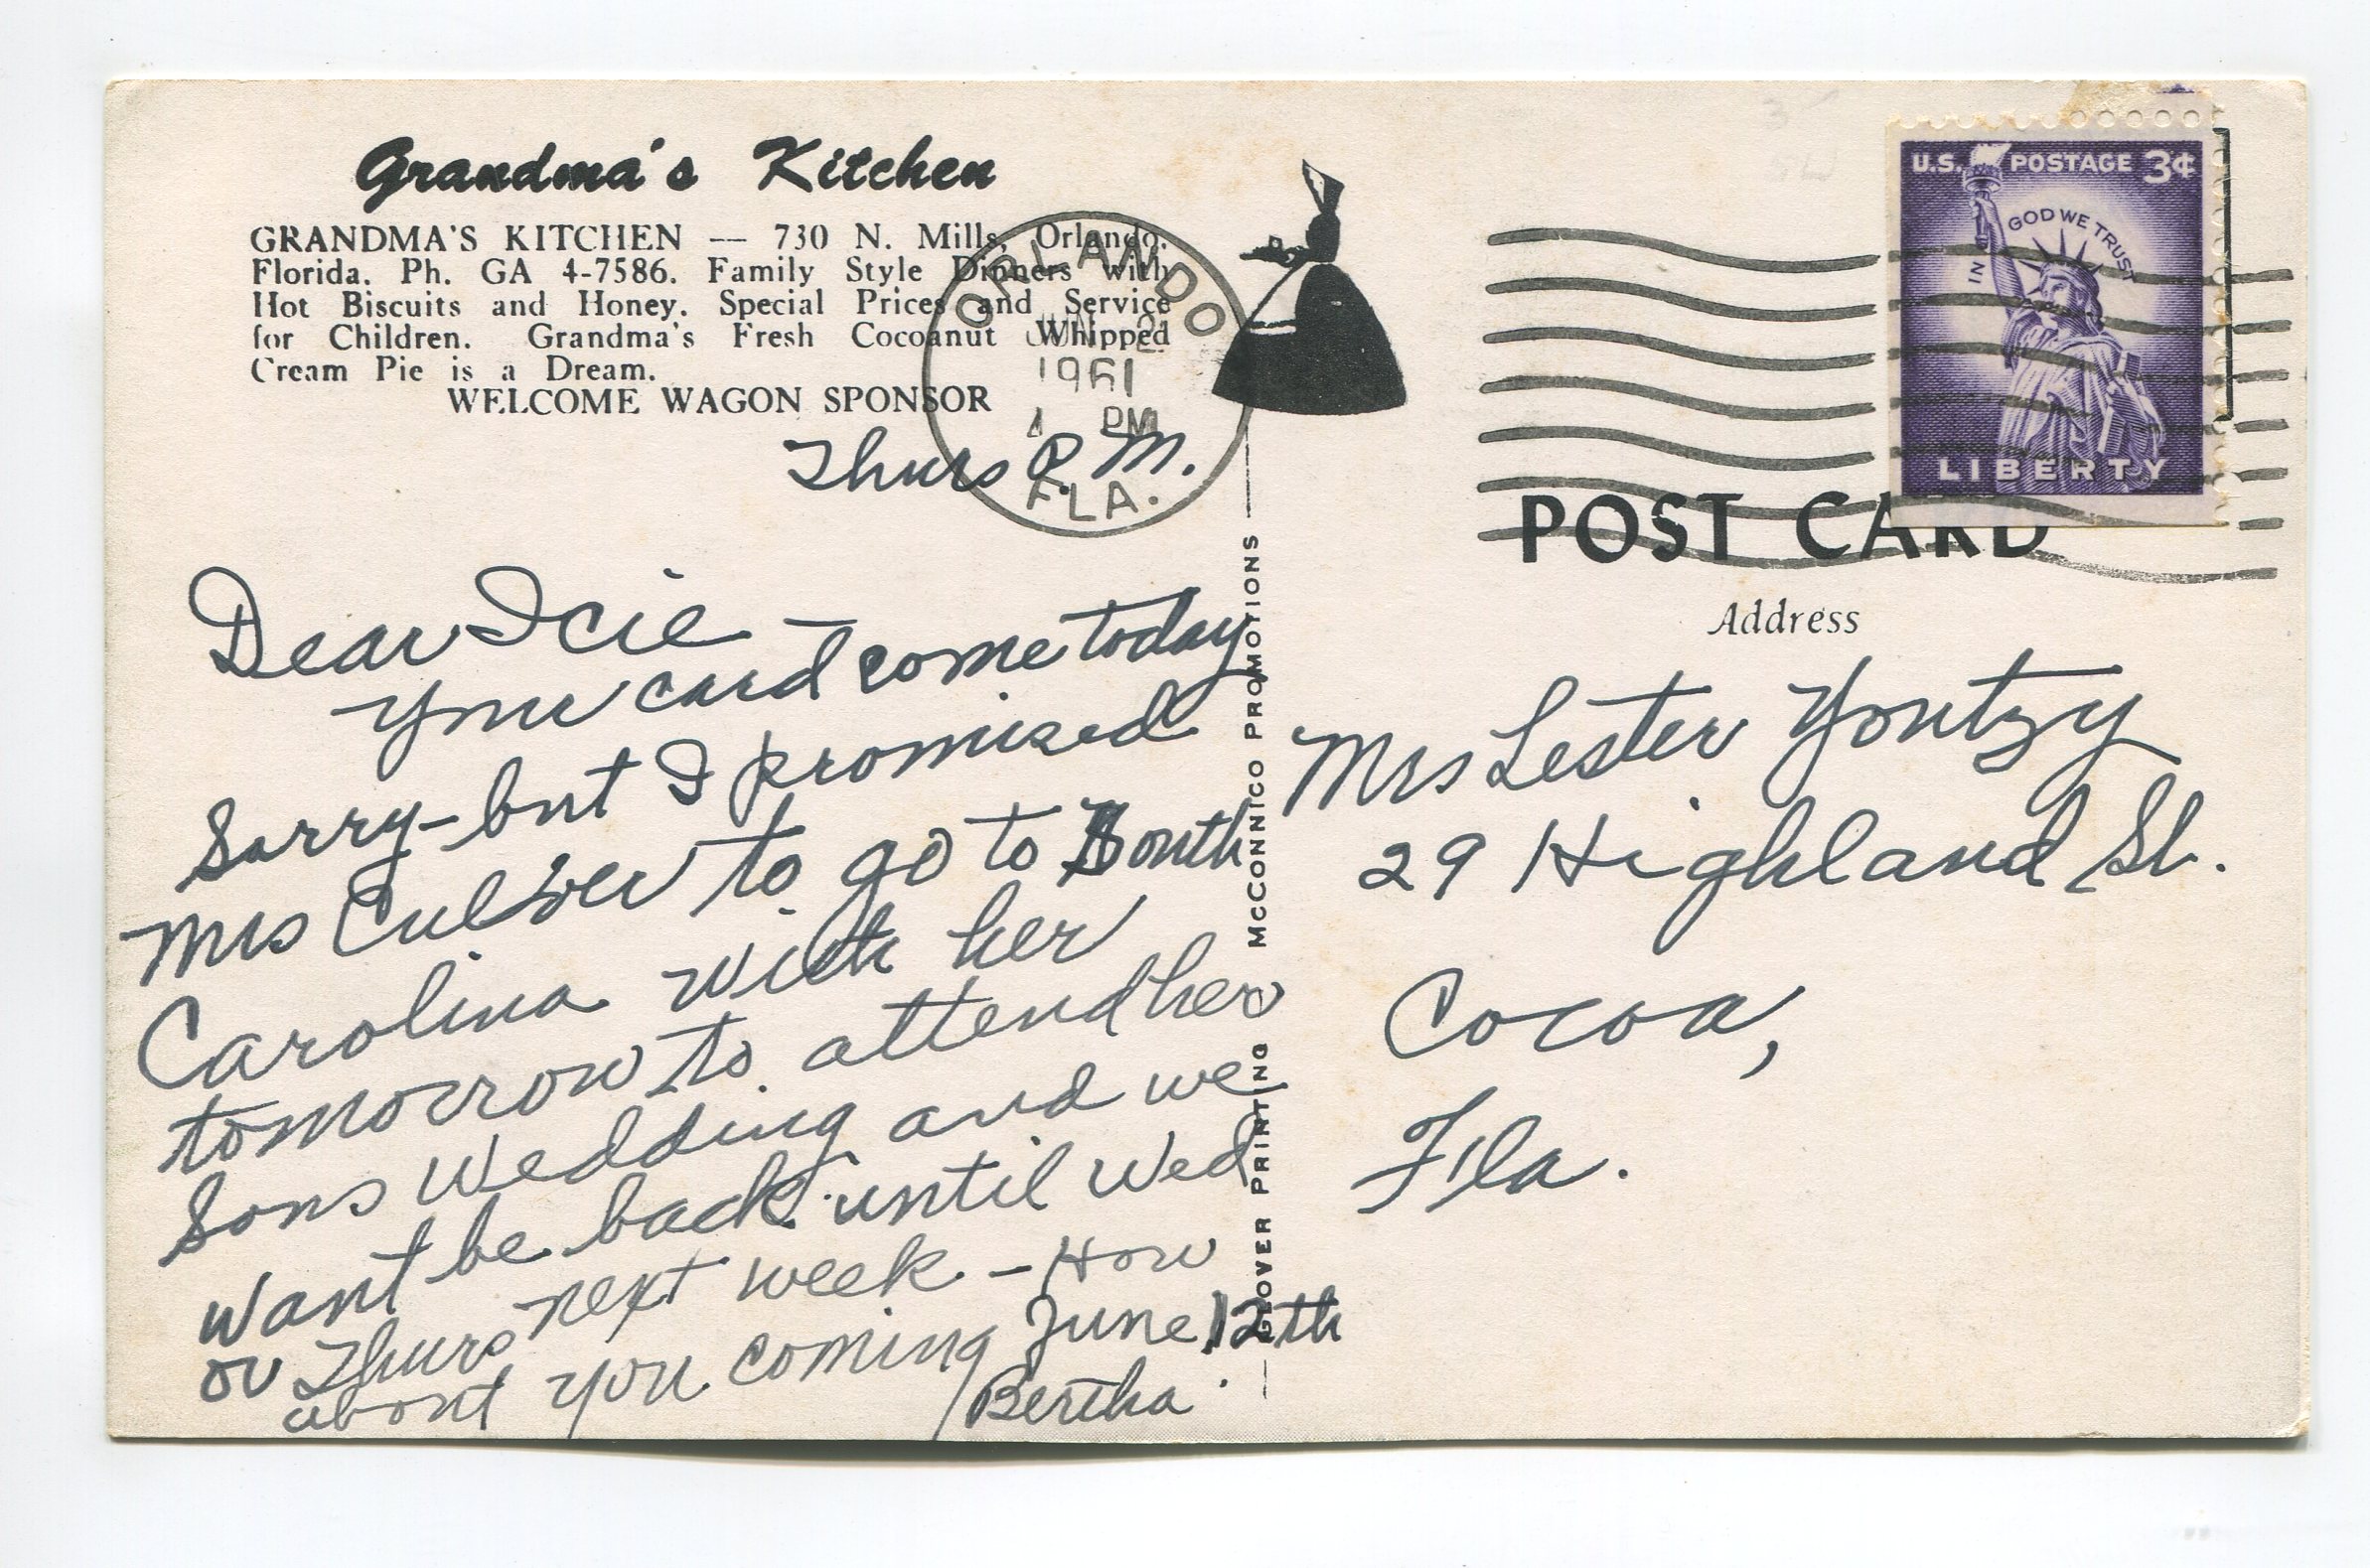 Grandma's Kitchen
GRANDMA'S KITCHEN — 730 N. Mills, Orlando,
Florida. Ph. GA 4-7586. Family Style Dinners with
Hot Biscuits and Honey. Special Prices and Service
for Children. Grandma's Fresh Cocoanut Whipped
Cream Pie is a Dream.
WELCOME WAGON SPONSOR
ORLANDO
JUN
1961
PM
FLA.
Thurs P.M.
Dear Icie —
Your card come today
Sorry - but I promised
Mrs Culver to go to South
Carolina with her
tomorrow to attend her
Sons Wedding and we
Want be back until Wed
or Thurs next week - How
about you coming June 12th
Bertha.
GLOVER PRINTING McCONNICO PROMOTIONS
U.S. POSTAGE 3¢
IN GOD WE TRUST
LIBERTY
POST CARD
Address
Mrs Lester Yontzy
29 Highland St.
Cocoa,
Fla.